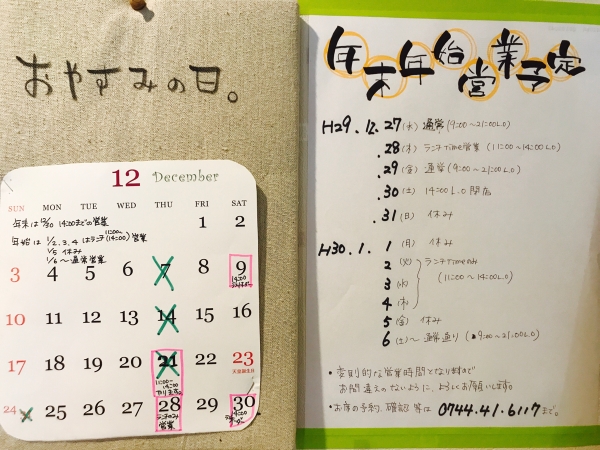 おやすみの日。
12 December
SUN MON TUE WED THU FRI SAT
年末は12/30 14:00までの営業
年始は 1/2.3.4 はランチ(11:00~14:00)営業
1/5 休み
1/6 ~ 通常営業
1 2
3 4 5 6 7 8 9
10 11 12 13 14 15 16
17 18 19 20 21 22 23
天皇誕生日
11:00~
14:00
やります。
24 25 26 27 28 29 30
営業
年末年始営業予定
H29.12.27(水) 通常(9:00~21:00L.O)
.28(木) ランチTime営業 (11:00~14:00L.O)
.29(金) 通常(9:00~21:00L.O)
.30(土) 14:00L.O 閉店
.31(日) 休み
H30.1.1(月) 休み
2(火) ランチTimeのみ
3(水) (11:00~14:00L.O)
4(木)
5(金) 休み
6(土)~通常通り(9:00~21:00L.O)
・変則的な営業時間となりますので
お間違えのないように、よろしくお願いします。
・お席の予約、確認 等は 0744.41.6117まで。